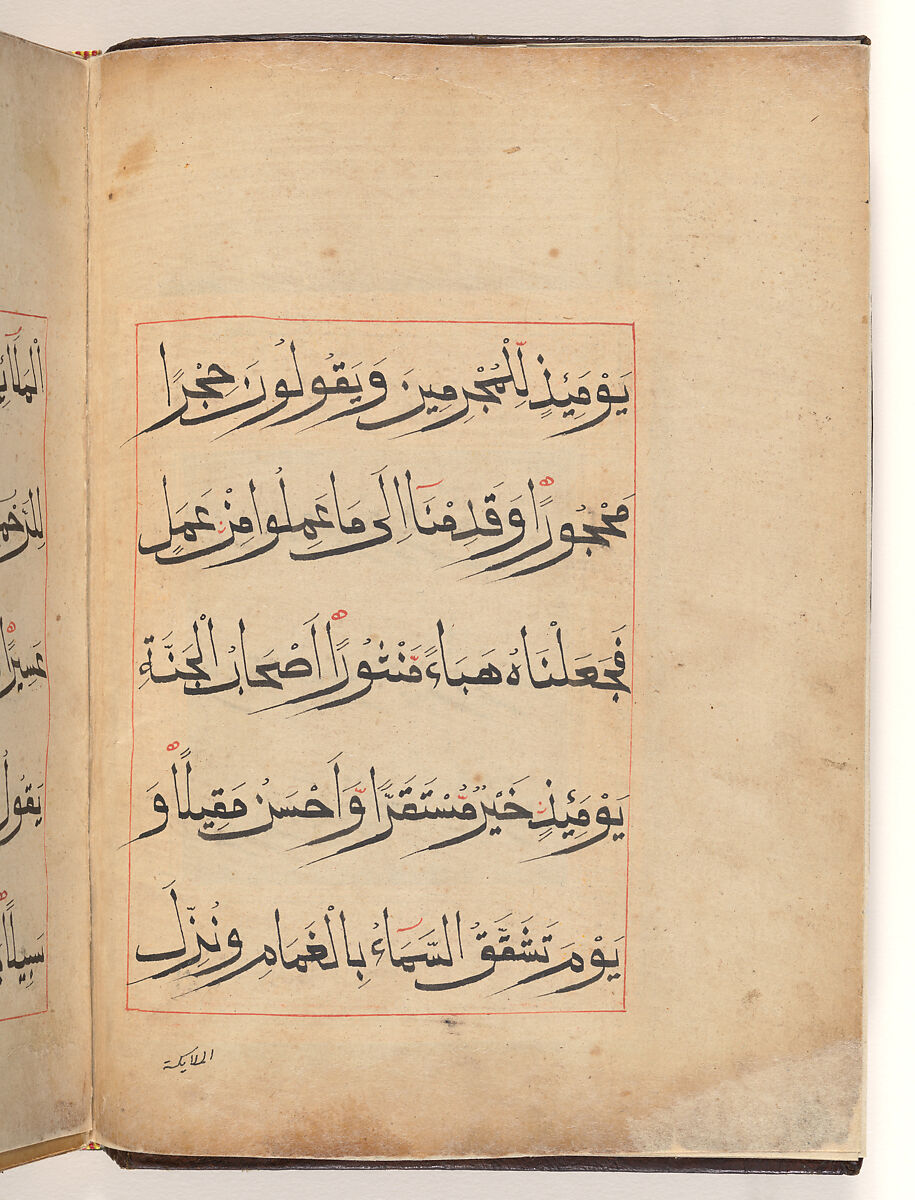 يَوْمَئِذٍ لِّلْمُجْرِمِينَ وَيَقُولُونَ حِجْرًا
مَحْجُورًا وَقَدِمْنَا إِلَى مَا عَمِلُوا مِنْ عَمَلٍ
فَجَعَلْنَاهُ هَبَاءً مَّنْثُورًا أَصْحَابُ الْجَنَّةِ
يَوْمَئِذٍ خَيْرٌ مُّسْتَقَرًّا وَّأَحْسَنُ مَقِيلًا وَ
يَوْمَ تَشَقَّقُ السَّمَاءُ بِالْغَمَامِ وَنُزِّلَ
الملايكة
عَسِيرًا
يَقُولُ